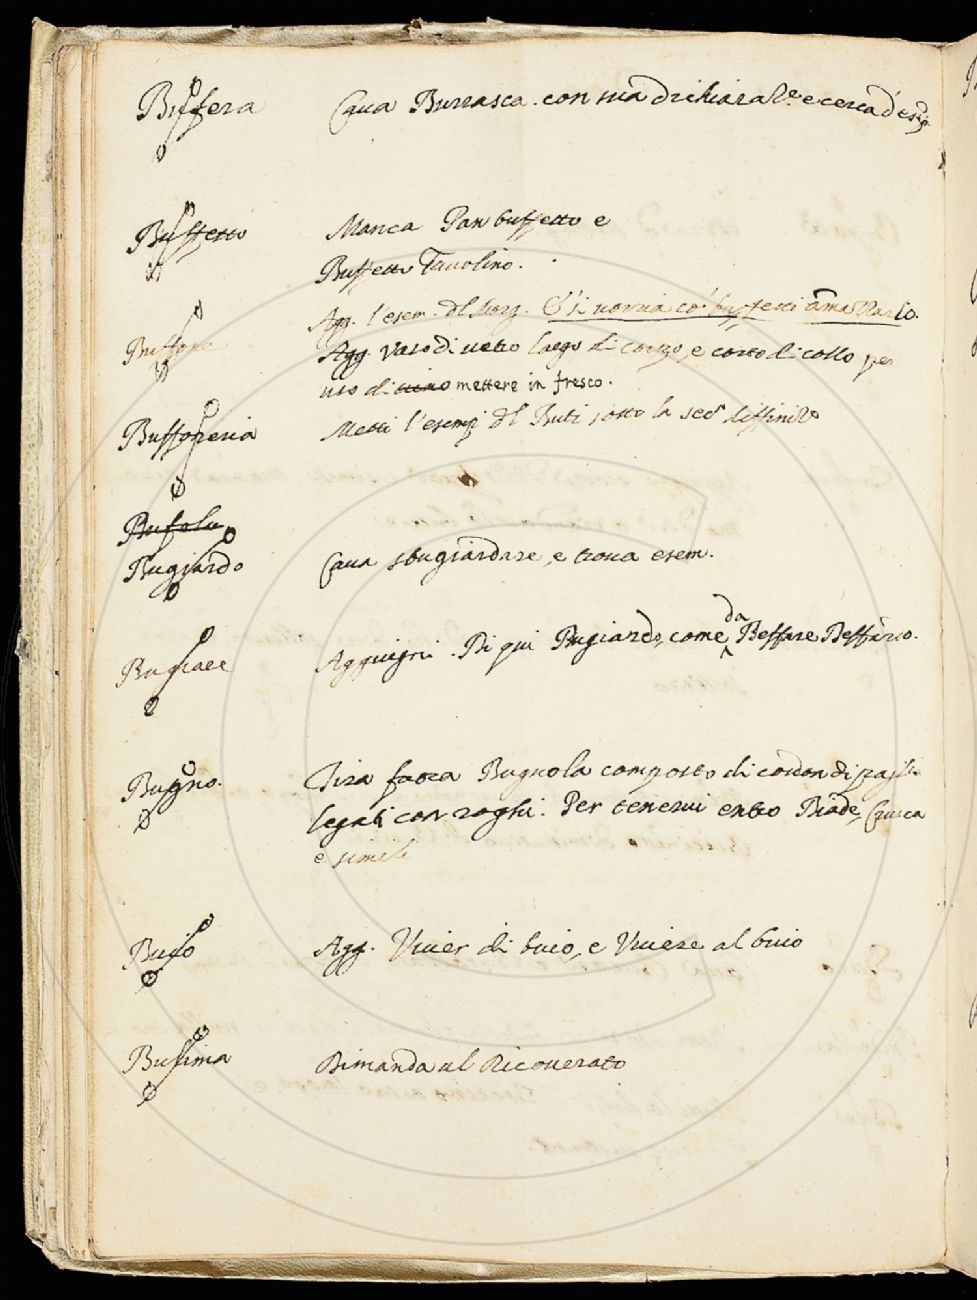 Buffera Caua Burrasca. con sua dichiaraz.e e cerca d'
Buffetto Manca Pan buffetto e
Buffetto Tauolino.
Agg. l'esem. dl Morg. E' si uorria co' buffetti amazzarlo.
Buffone Agg. vaso di uetro largo di corpo, e corto di collo per
uso di mettere in fresco.
Buffoneria Metti l'esemp dl Buti sotto la sec diffiniz
Bufolo
Bugiardo Caua sbugiardare, e troua esem.
da
Bugiare Aggiugni. Di qui Bugiardo, come Beffare Beffardo.
Bugno. Tira fuora Bugnola composto di cordon di paglia
legati con roghi. Per tenerui entro Biade, Crusca
e simili
Buio Agg. Viuer di buio, e Viuere al buio
Bulima Dimanda al Ricouerato